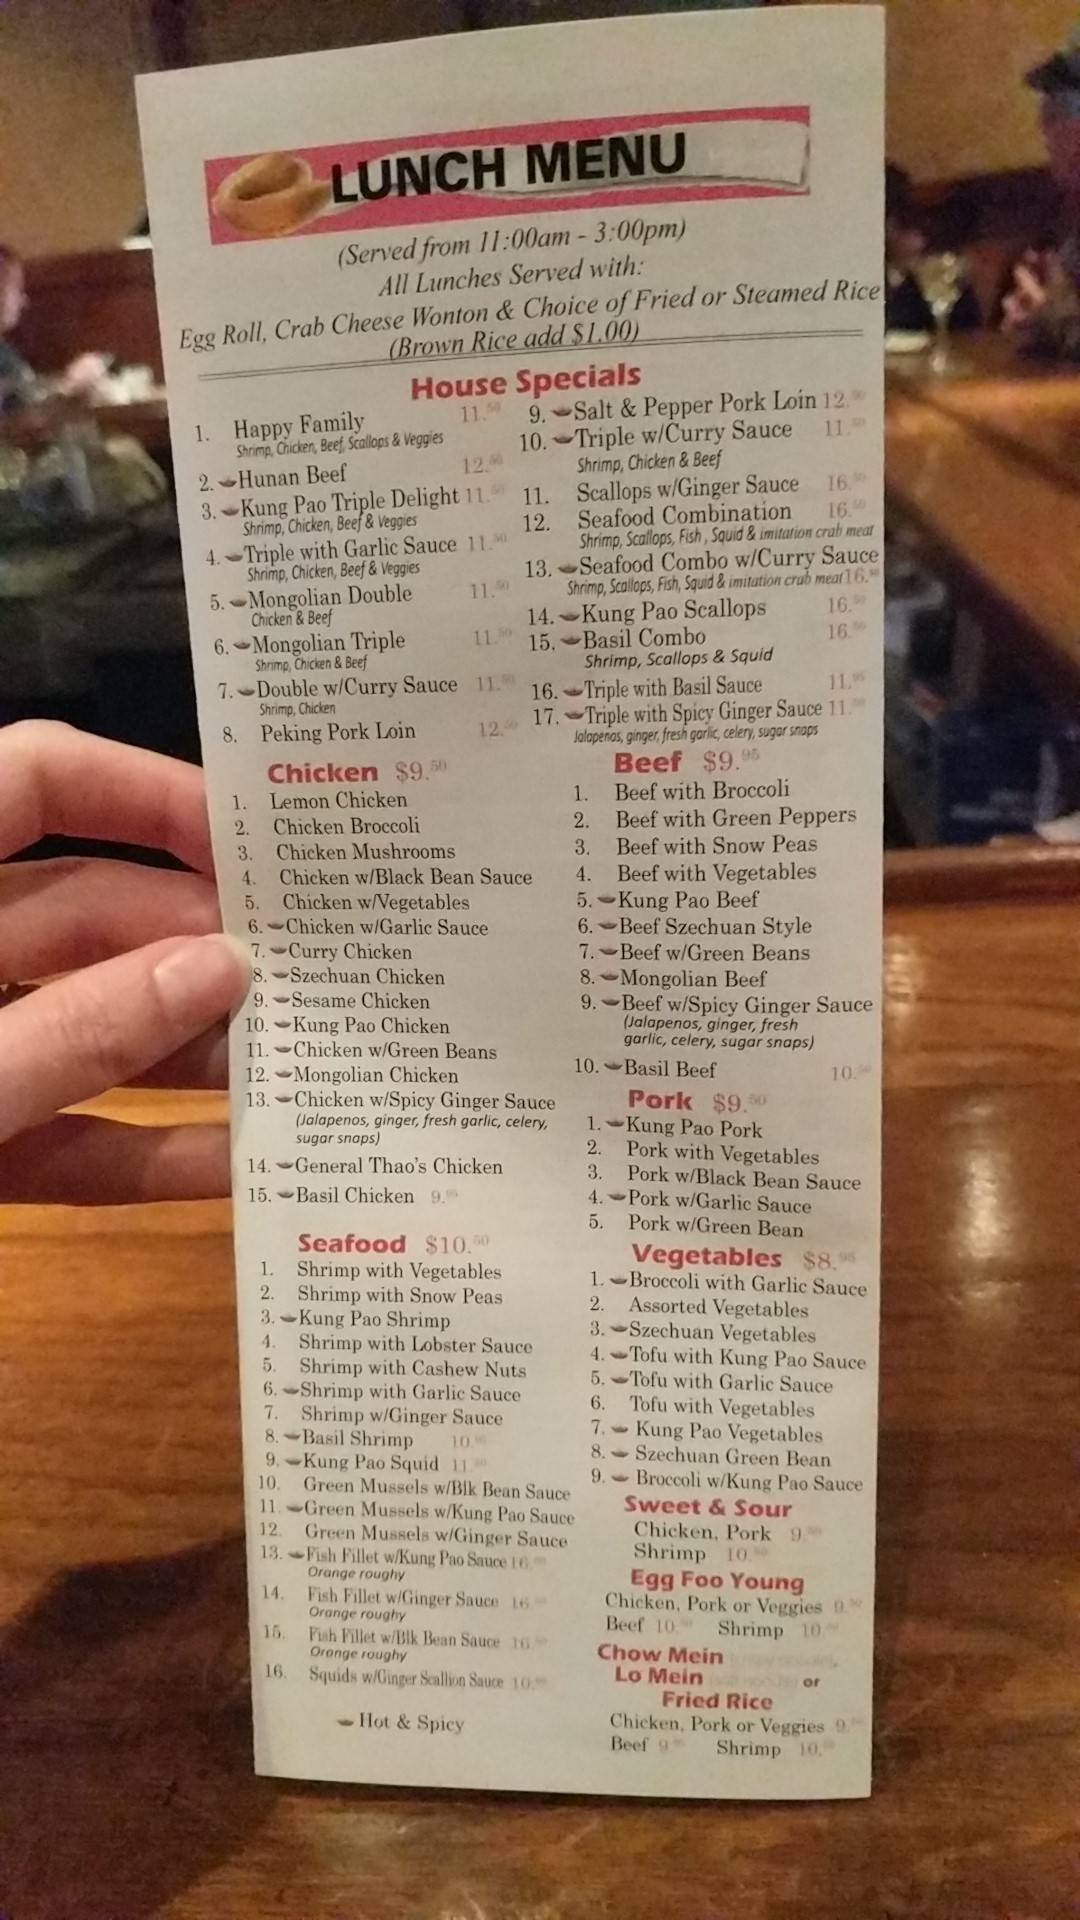 LUNCH MENU
(Served from 11:00am - 3:00pm)
All Lunches Served with:
Egg Roll, Crab Cheese Wonton & Choice of Fried or Steamed Rice
(Brown Rice add $1.00)
House Specials
1. Happy Family 11.50
Shrimp, Chicken, Beef, Scallops & Veggies
2. Hunan Beef 12.50
3. Kung Pao Triple Delight 11.50
Shrimp, Chicken, Beef & Veggies
4. Triple with Garlic Sauce 11.50
Shrimp, Chicken, Beef & Veggies
5. Mongolian Double 11.50
Chicken & Beef
6. Mongolian Triple 11.50
Shrimp, Chicken & Beef
7. Double w/Curry Sauce 11.50
Shrimp, Chicken
8. Peking Pork Loin 12.50
9. Salt & Pepper Pork Loin 12.50
10. Triple w/Curry Sauce 11.50
Shrimp, Chicken & Beef
11. Scallops w/Ginger Sauce 16.50
12. Seafood Combination 16.50
Shrimp, Scallops, Fish, Squid & imitation crab meat
13. Seafood Combo w/Curry Sauce
Shrimp, Scallops, Fish, Squid & imitation crab meat 16.50
14. Kung Pao Scallops 16.50
15. Basil Combo 16.50
Shrimp, Scallops & Squid
16. Triple with Basil Sauce 11.95
17. Triple with Spicy Ginger Sauce 11.
Jalapenos, ginger, fresh garlic, celery, sugar snaps
Chicken $9.50
1. Lemon Chicken
2. Chicken Broccoli
3. Chicken Mushrooms
4. Chicken w/Black Bean Sauce
5. Chicken w/Vegetables
6. Chicken w/Garlic Sauce
7. Curry Chicken
8. Szechuan Chicken
9. Sesame Chicken
10. Kung Pao Chicken
11. Chicken w/Green Beans
12. Mongolian Chicken
13. Chicken w/Spicy Ginger Sauce
(Jalapenos, ginger, fresh garlic, celery,
sugar snaps)
14. General Thao's Chicken
15. Basil Chicken 9.95
Seafood $10.50
1. Shrimp with Vegetables
2. Shrimp with Snow Peas
3. Kung Pao Shrimp
4. Shrimp with Lobster Sauce
5. Shrimp with Cashew Nuts
6. Shrimp with Garlic Sauce
7. Shrimp w/Ginger Sauce
8. Basil Shrimp 10.
9. Kung Pao Squid 11.
10. Green Mussels w/Blk Bean Sauce
11. Green Mussels w/Kung Pao Sauce
12. Green Mussels w/Ginger Sauce
13. Fish Fillet w/Kung Pao Sauce 16.
Orange roughy
14. Fish Fillet w/Ginger Sauce 16.
Orange roughy
15. Fish Fillet w/Blk Bean Sauce 16.
Orange roughy
16. Squids w/Ginger Scallion Sauce 10.
Hot & Spicy
Beef $9.95
1. Beef with Broccoli
2. Beef with Green Peppers
3. Beef with Snow Peas
4. Beef with Vegetables
5. Kung Pao Beef
6. Beef Szechuan Style
7. Beef w/Green Beans
8. Mongolian Beef
9. Beef w/Spicy Ginger Sauce
(Jalapenos, ginger, fresh
garlic, celery, sugar snaps)
10. Basil Beef 10.
Pork $9.50
1. Kung Pao Pork
2. Pork with Vegetables
3. Pork w/Black Bean Sauce
4. Pork w/Garlic Sauce
5. Pork w/Green Bean
Vegetables $8.95
1. Broccoli with Garlic Sauce
2. Assorted Vegetables
3. Szechuan Vegetables
4. Tofu with Kung Pao Sauce
5. Tofu with Garlic Sauce
6. Tofu with Vegetables
7. Kung Pao Vegetables
8. Szechuan Green Bean
9. Broccoli w/Kung Pao Sauce
Sweet & Sour
Chicken, Pork 9.
Shrimp 10.
Egg Foo Young
Chicken, Pork or Veggies 9.
Beef 10. Shrimp 10.
Chow Mein
Lo Mein or
Fried Rice
Chicken, Pork or Veggies 9.
Beef 9. Shrimp 10.